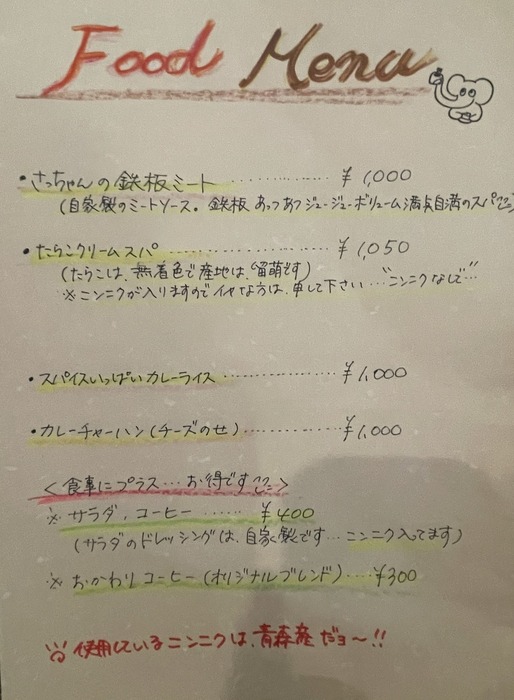 Food Menu
・さっちゃんの鉄板ミート ………… ¥1,000
(自家製のミートソース。鉄板あつあつジュージューボリューム満点自満のスパ
・たらこクリームスパ ………… ¥1,050
(たらこは、無着色で産地は、"留萌です)
※ニンニクが入りますのでイヤな方は、申して下さい…"ニンニクなしで"
・スパイスいっぱいカレーライス ………… ¥1,000
・カレーチャーハン(チーズのせ) ………… ¥1,000
<食事にプラス…お得です>
※サラダ、コーヒー …… ¥400
(サラダのドレッシングは、自家製です…ニンニク入ってます)
※おかわりコーヒー(オリジナルブレンド)…. ¥300
使用しているニンニクは、青森産だヨ〜!!